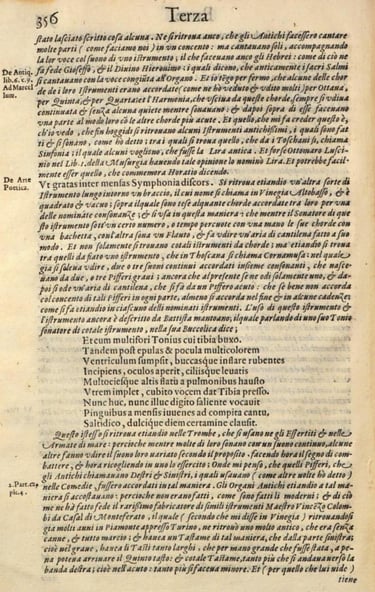 356
Terza
stato lasciato scritto cosa alcuna. Ne si ritrova anco, che gli Antichi facessero cantare
molte parti (come facciamo noi) in un concento: ma cantavano soli, accompagnando
la lor voce col suono di uno istrumento; il che facevano anco gli Hebrei: come di ciò ne
De Antiq.
fà fede Gioseffo, & il Divino Hieronimo: i quali dicono, che anticamente i sacri Salmi
lib. 6. c. 9.
si cantavano con la voce congiūta all'Organo. Et io tēgo per fermo, che alcune delle chor
Ad Marcel
de de i loro Istrumenti erano accordate (come ne hò veduto & udito molti) per Ottava,
lum.
per Quinta, & per Quarta: et l'Harmonia, che usciva da queste chorde, sempre si udiva
continuata & senza alcuna quiete mentre sonavano; & dapoi sopra di esse facevano
una parte al modo loro cō le altre chorde più acute. Et quello, che mi fà creder questo è,
ch'io vedo, che fin hoggidi si ritrovano alcuni Istrumenti antichissimi, i quali sono fat
ti & si sonano, come hò detto; tra i quali si trova quello, che da i Toscani si chiama
Sinfonia: il quale alcuni vogliono, che fusse la Lira antica. Et forse Ottomaro Lusci-
nio nel Lib. 1. della Musurgia havendo tale opinione lo nominò Lira. Et potrebbe facil-
mente esser quello, che commemora Horatio dicendo.
De Arte
Poetica.
Vt gratas inter mensas Symphonia discors. Si ritrova etiandio un'altra sorte di
Istrumento lungo intorno un braccio, il cui nome si chiama in Vinegia Altobasso, & è
quadrato & vacuo: sopra il quale sono tese alquante chorde accordate tra loro per una
delle nominate consonanze; & si usa in questa maniera: che mentre il Sonatore di que
sto istrumento sott'un certo numero, o tempo percuote con una mano le sue chorde con
una bachetta, con l'altra sona un Flauto, & fà udire un'aria di cantilena fatta a suo
modo. Et non solamente si trovano cotali istrumenti da chorde: ma etiandio si trova
tra quelli da fiato uno istrumento, che in Thoscana si chiama Cornamusa: nel quale
gia si soleva udire, due o tre suoni continui accordati insieme consonanti, che nasce-
vano da due, o tre Pifferi gravi; ancora che al presente se ne odi solamente uno, & da-
poi si ode un'aria di cantilena, che si fà da un Piffero acuto: che se bene non accorda
col concento di tali Pifferi in ogni parte, almeno si accorda nel fine & in alcune cadenze;
come si fà etiandio in ciascuno delli nominati istrumenti. L'uso di questo istrumento &
l'istrumento ancora è descritto da Battista mantoano, il quale parlando di uno suo Tonio
sonatore di cotale istrumento, nella sua Buccolica dice;
Et cum multifori Tonius cui tibia buxo.
Tandem post epulas & pocula multicolorem
Ventriculum sumpsit, buccasque inflare rubentes
Incipiens, oculos aperit, ciliisque levatis
Multociesque altis flatu a pulmonibus hausto
Vtrem implet, cubito vocem dat Tibia presso.
Nunc huc, nunc illuc digito saliente vocavit
Pinguibus a mensis iuvenes ad compita cantu,
Saltidico, dulcique diem certamine clausit.
Questo istesso si ritrova etiandio nelle Trombe, che si usano ne gli Esserciti & nelle
Armate di mare: percioche mentre molte di loro sonano con un suono continuo, alcune
altre fanno udire il suono loro variato secondo il proposito, facendo hora il segno di com-
battere, & hora ricogliendo in uno lo essercito: Onde mi penso, che quelli Pifferi, che
gli Antichi chiamavano Destri & Sinistri, i quali usavano (come altre volte hò detto)
2. Part. ca
nelle Comedie, fussero accordati in tal maniera. Gli Organi Antichi etiandio a tal ma-
pit. 4.
niera si accostavano: percioche non erano fatti, come sono fatti li moderni; & di ciò
me ne hà fatto fede il rarissimo fabricatore di simili istrumenti Maestro Vincēzo Colom-
bi da Casal di Monteferato, il quale (secondo che mi disse in Vinegia) ritrovandosi
gia molti anni in Piamonte appresso Turino, ne ritrovò uno molto antico, che era senza
canne, & tutto marcio; & havea un Tastame di tal maniera, che dalla parte sinistra;
cioè nel grave, havea li Tasti tanto larghi: che per mano grande che fusse stata, a pe-
na poteva arrivare il Quinto tasto: & cotale Tastame, tanto più che si andava verso la
banda destra; cioè nell'acuto: tanto più si faceva minore. Et (per quello che lui vide)
tiene